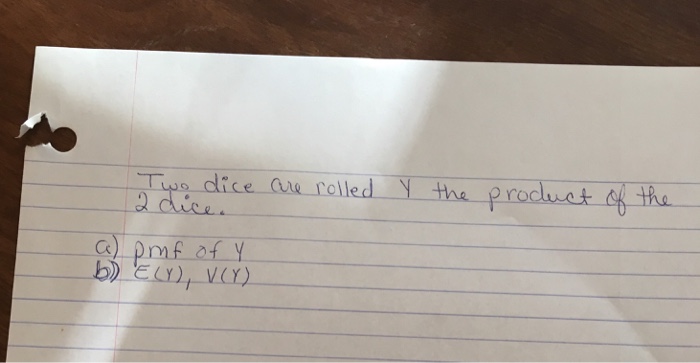 Two dice are rolled Y the product of the
2 dice.
a) pmf of Y
b) E(Y), V(Y)